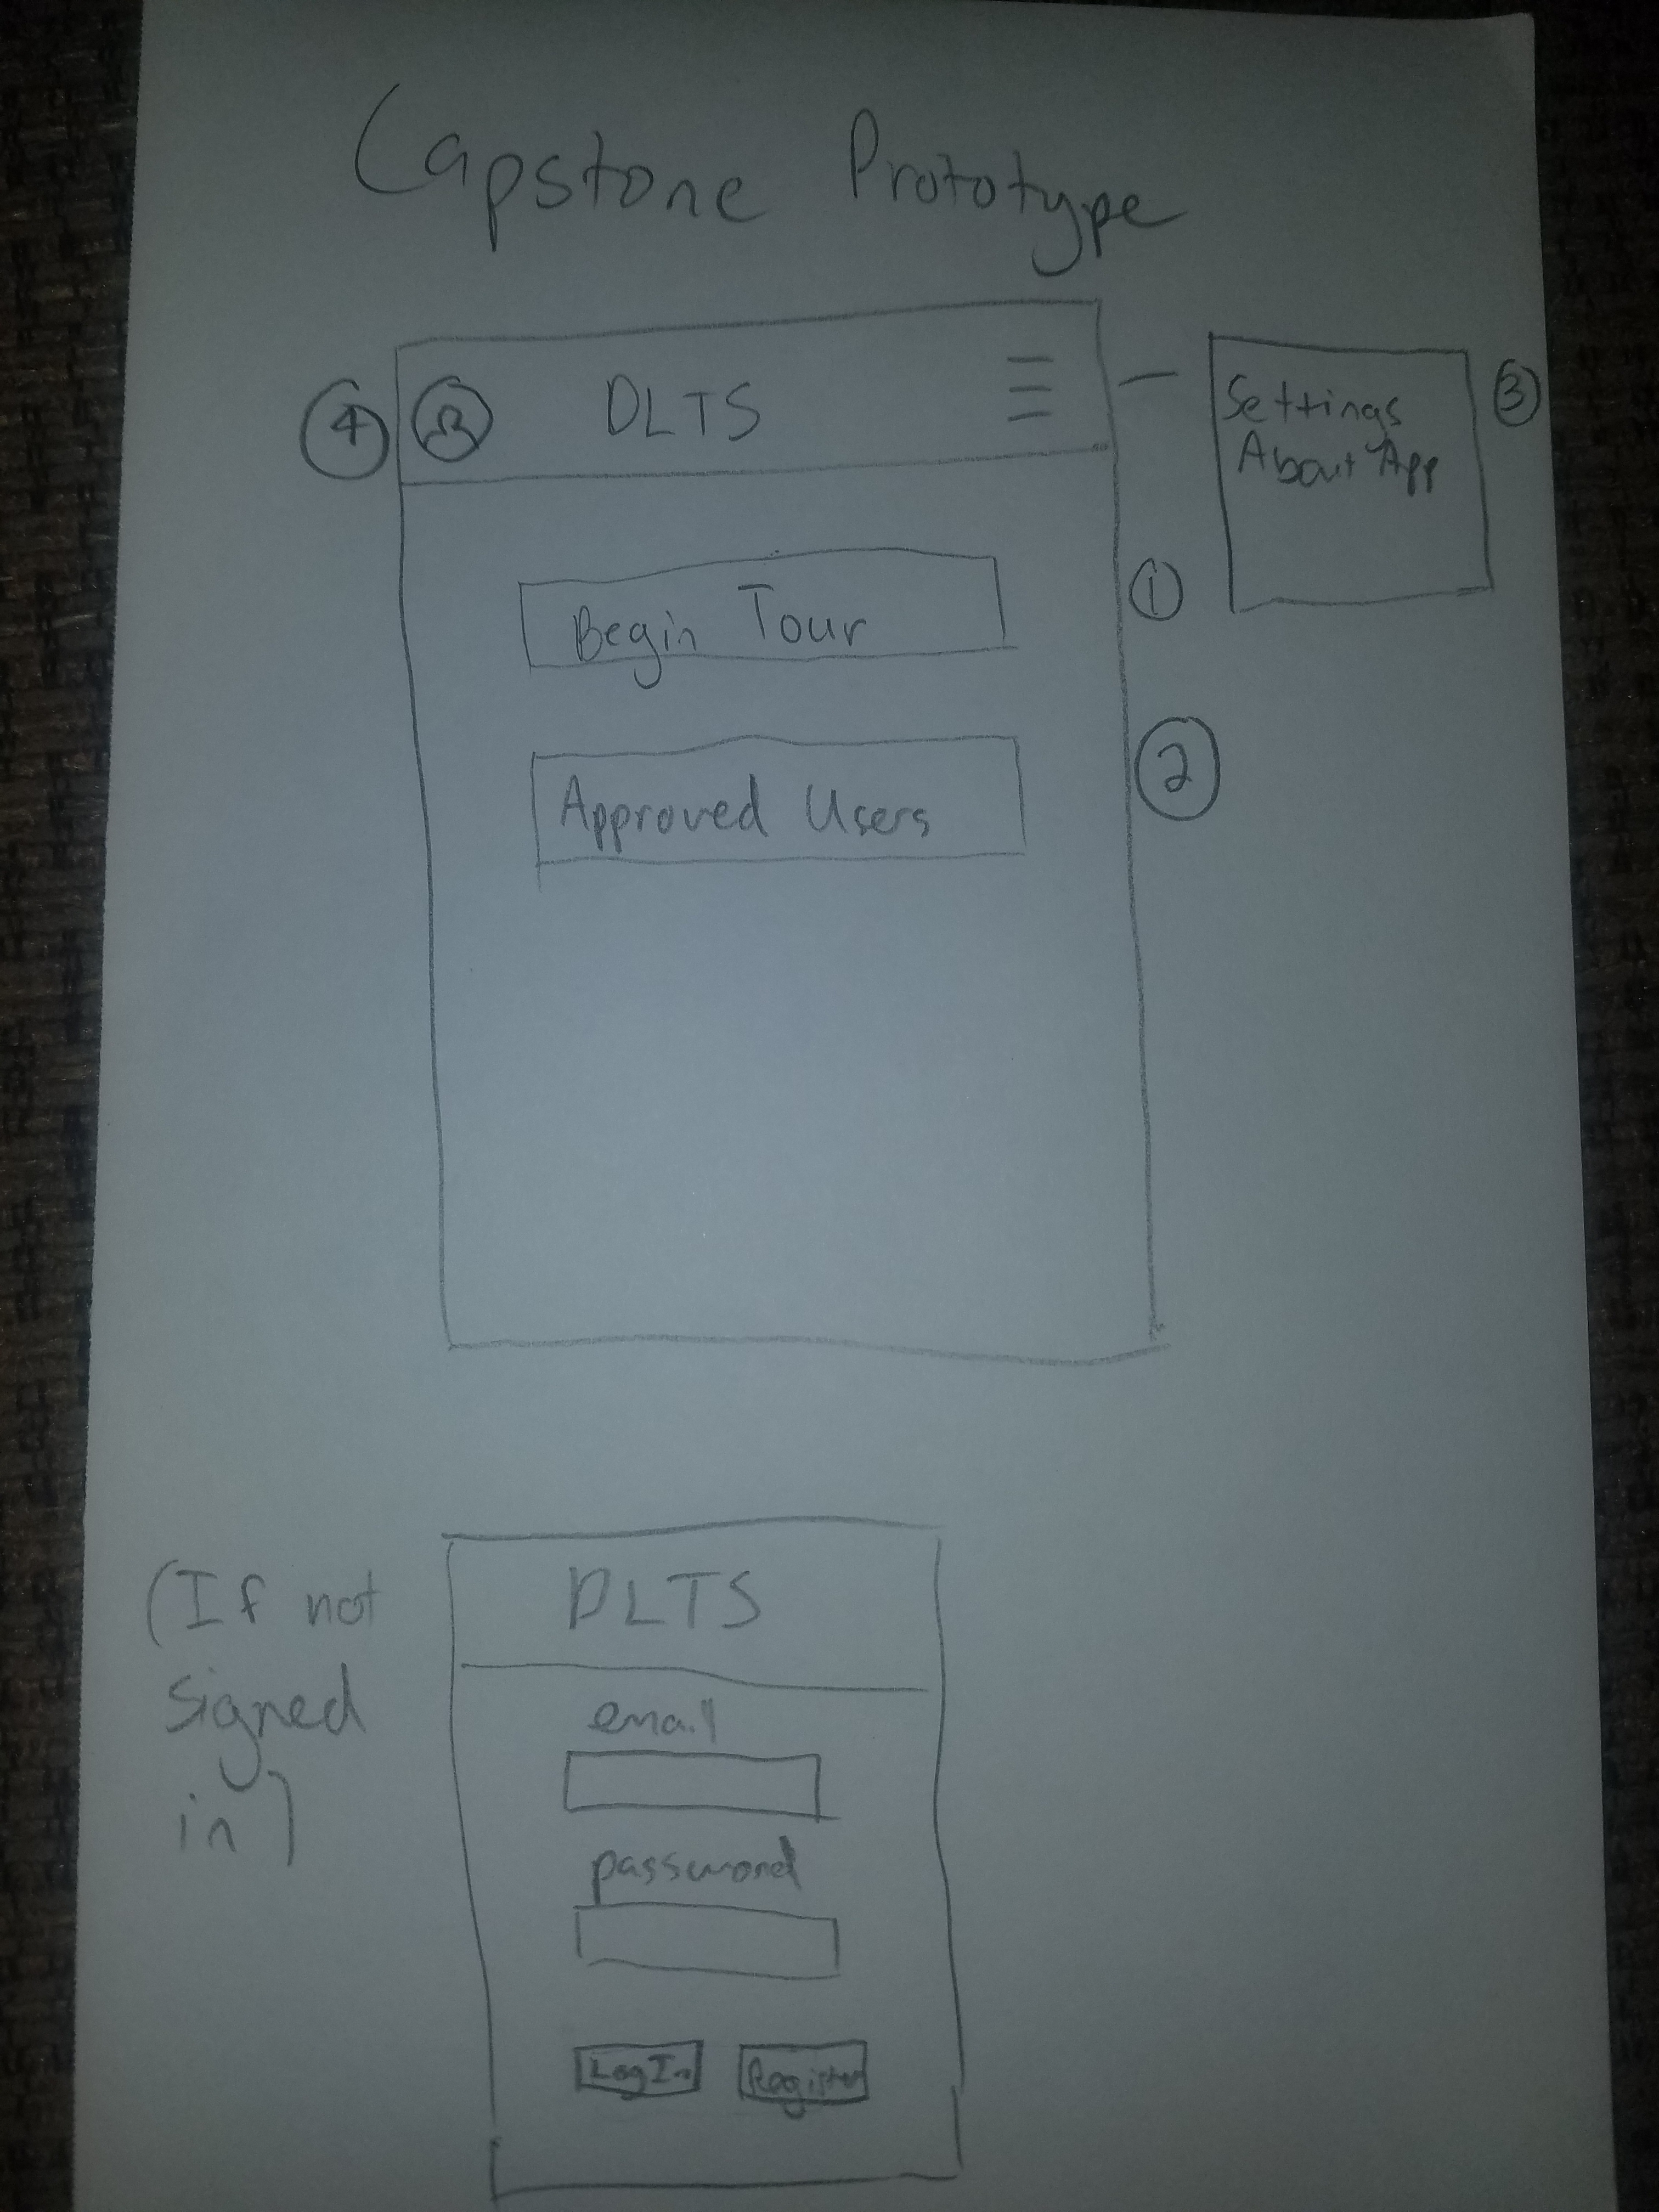 Capstone Prototype
4 DLTS
Settings 3
About App
Begin Tour 1
Approved Users 2
(If not
signed
in)
DLTS
email
password
Log In Register